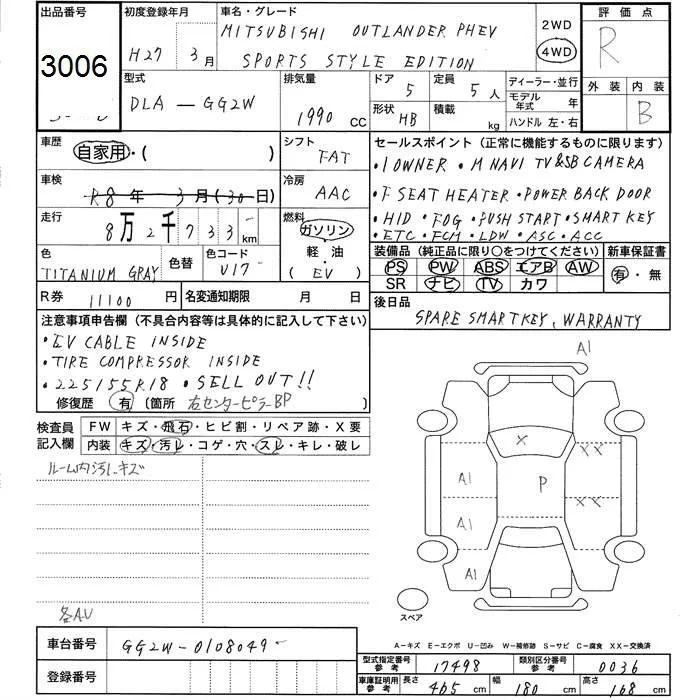 出品番号
3006
初度登録年月
H27 3月
車名・グレード
MITSUBISHI OUTLANDER PHEV
SPORTS STYLE EDITION
2WD
4WD
評価点
R
外装 内装
B
型式
DLA-GG2W
排気量
1990 CC
ドア
5
定員
5人
形状
HB
積載
kg
ディーラー・並行
モデル年式 年
ハンドル 左・右
車歴
自家用・( )
シフト
FAT
車検
R8年3月(30日)
冷房
AAC
走行
8万2千733 km
燃料
ガソリン
軽・油
(EV)
色
TITANIUM GRAY
色替
色コード
U17
R券 11100円
名変通知期限 月 日
セールスポイント(正常に機能するものに限ります)
・1OWNER ・M NAVI TV&SB CAMERA
・F SEAT HEATER ・POWER BACK DOOR
・HID ・FOG ・PUSH START ・SMART KEY
・ETC ・FCM ・LDW ・ASC ・ACC
装備品(純正品に限り○をつけてください)
PS PW ABS エアB AW
SR ナビ TV カワ
新車保証書
有・無
後日品
SPARE SMARTKEY, WARRANTY
注意事項申告欄(不具合内容等は具体的に記入して下さい)
・EV CABLE INSIDE
・TIRE COMPRESSOR INSIDE
・225/55R18 ・SELL OUT!!
修復歴 有 (箇所 右センターピラーBP)
検査員記入欄
FW キズ・飛石・ヒビ割・リペア跡・X要
内装 キズ・汚レ・コゲ・穴・スレ・キレ・破レ
ルーム内汚レ、キズ
各AU
A1
X
XX
A1
P
XX
A1
A1
A1
スペア
車台番号 GG2W-0108049
登録番号
A-キズ E-エクボ U-凹み W-補修跡 S-サビ C-腐食 XX-交換済
型式指定番号 参考 17498
類別区分番号 参考 0036
車庫証明用 参考 長さ 465 cm 幅 180 cm 高さ 168 cm